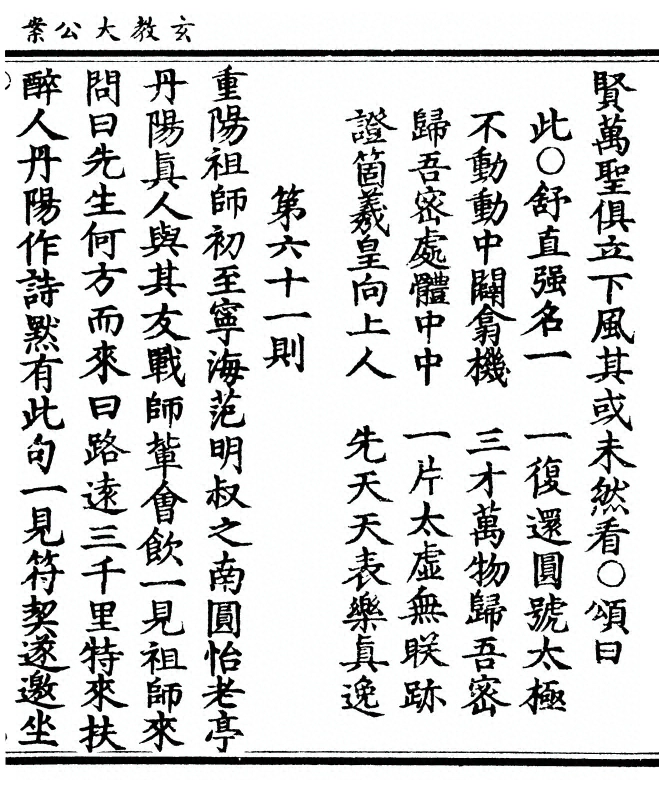 玄教大公案
賢萬聖俱立下風其或未然看○頌曰
此○舒直强名一　一復還圓號太極
不動動中闢翕機　三才萬物歸吾密
歸吾密處體中中　一片太虛無朕跡
證箇羲皇向上人　先天天表樂眞逸
第六十一則
重陽祖師初至寧海范明叔之南圓怡老亭
丹陽眞人與其友戰師輩會飲一見祖師來
問曰先生何方而來曰路遠三千里特來扶
醉人丹陽作詩默有此句一見符契遂邀坐